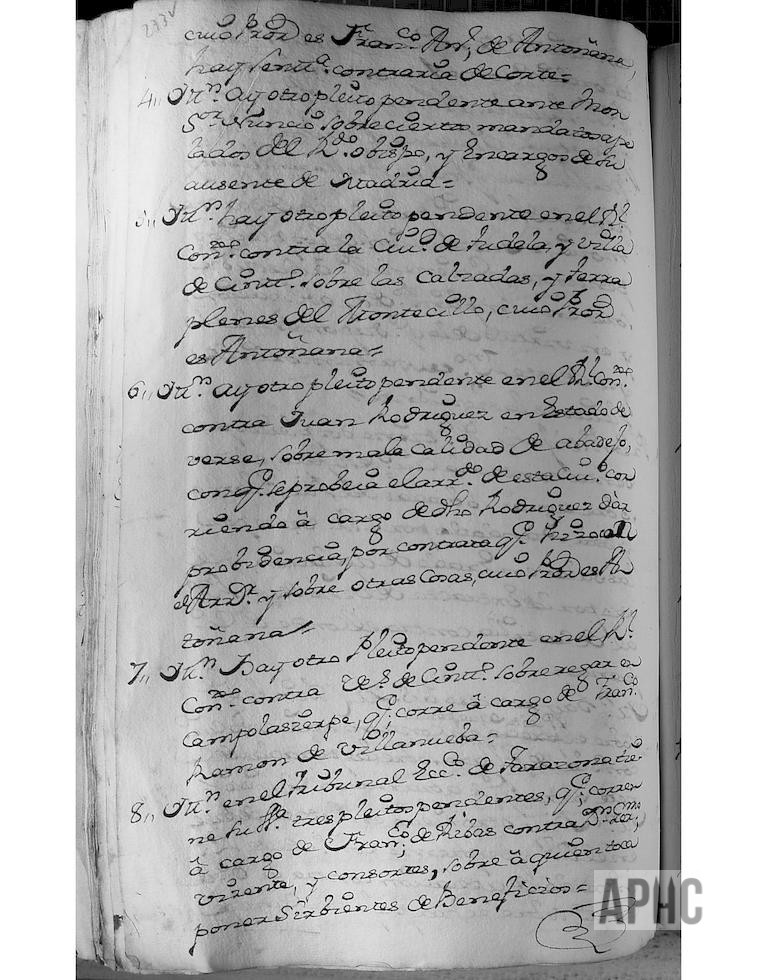 273v
cuio Pror. es Franco. Anto. de Antoñana,
hay sentª. contraria de Corte=
4,, Ittn. ay otro pleito pendente ante Mon
Sor. Nuncio sobre ciertos mandatos ape
lados del Rdo. obispo, y Encargos de su
ausente de Madrid=
5,, Ittn. hay otro pleito pendente en el Rl.
Conzo. contra la Ciud. de Tudela, y villa
de Cintto. sobre las calzadas, y terra
plenes del Montecillo, cuio Pror.
es Antoñana=
6,, Ittn. ay otro pleito pendente en el Rl. Conzo.
contra Juan Rodriguez en Estado de
verse, sobre mala calidad de abadejo,
con q. se probeia el arrdo. de esta Ciud. cor
riendo â cargo de dho Rodriguez dar
probidencia, por contrata q. hizo con
el Arrdr. y sobre otras Cosas, cuio Pror. es An
toñana=
7,, Ittn. Hay otro Pleito pendente en el Rl.
Conzo. contra Vs. de Cintto. sobre regar en
Campolasierpe, q. corre â cargo de Franco.
Ramon de Villanueba=
8,, Ittn. en el Tribunal Ecco. de Tarazona tie
ne tres pleitos pendentes, q. corren
â cargo de Franco. de Ribas contra
y consortes, sobre â quien toca
poner Sirbientes de Beneficios=
APHC